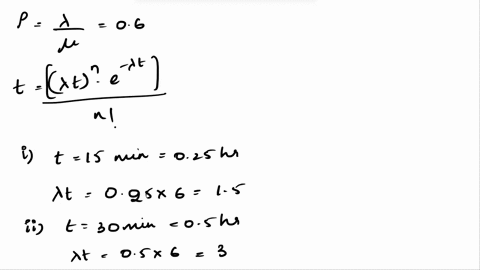 ρ = λ/μ = 0.6
t = [(λt)ⁿ · e^(-λt)] / n!
i) t = 15 min = 0.25 hr
λt = 0.25 x 6 = 1.5
ii) t = 30 min = 0.5 hr
λt = 0.5 x 6 = 3